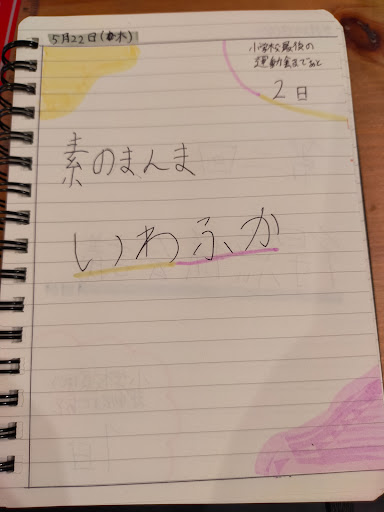 5月22日(木)
小学校最後の
運動会まであと
2日
素のまんま
いわふか